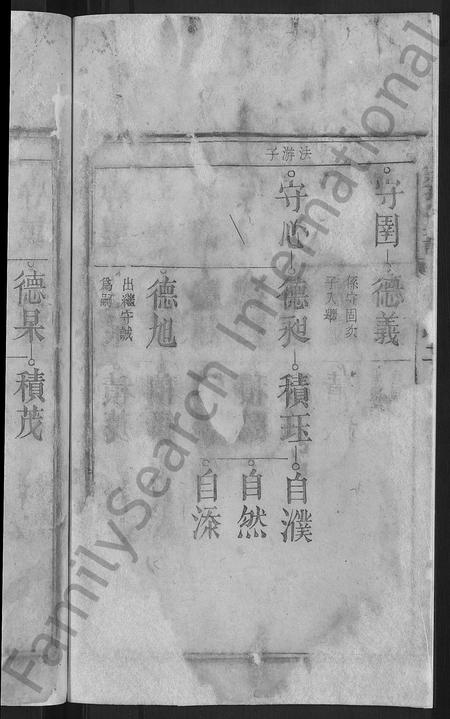 法游子
守圉
德義
係守固次
子入繼
守心
德昶
積珏
自濮
自然
自添
德旭
出繼守誠
為嗣
德杲
積茂
FamilySearch International